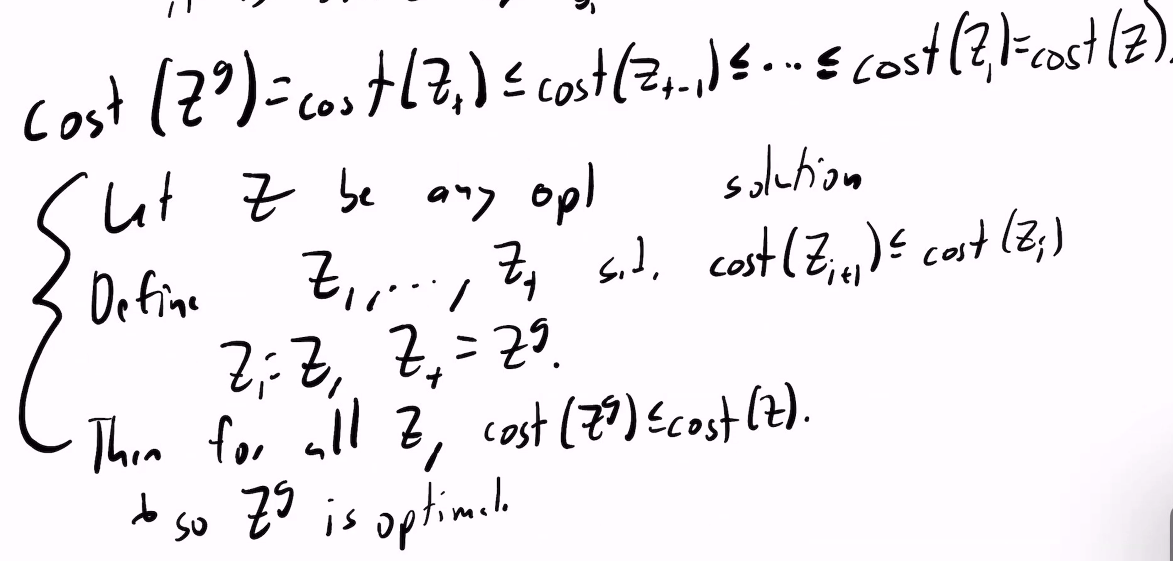 cost (Z^g) = cost(Z_t) ≤ cost(Z_{t-1}) ≤ ... ≤ cost(Z_1) = cost(Z).
Let Z be any opt solution
Define Z_1, ..., Z_t s.t. cost(Z_{i+1}) ≤ cost(Z_i)
Z_1 = Z, Z_t = Z^g.
Then for all Z, cost (Z^g) ≤ cost(Z).
so Z^g is optimal.